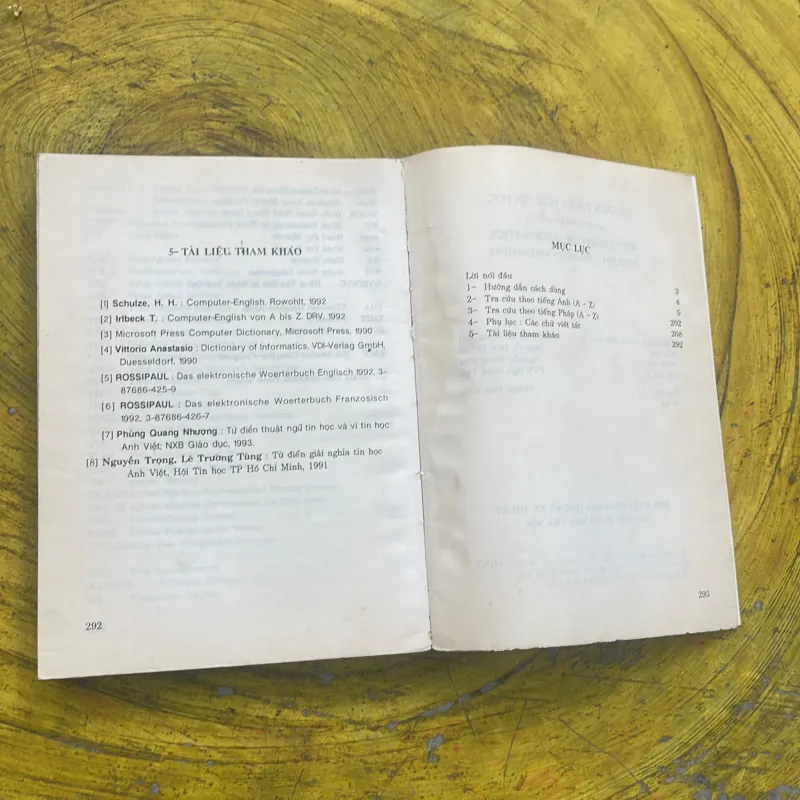 5- TÀI LIỆU THAM KHẢO
[1] Schulze, H. H. : Computer-English. Rowohlt, 1992
[2] Irlbeck T. : Computer-English von A bis Z. DRV, 1992
[3] Microsoft Press Computer Dictionary, Microsoft Press, 1990
[4] Vittorio Anastasio : Dictionary of Informatics, VDI-Verlag GmbH,
Duesseldorf, 1990
[5] ROSSIPAUL : Das elektronische Woerterbuch Englisch 1992, 3-
87686-425-9
[6] ROSSIPAUL : Das elektronische Woerterbuch Franzosisch
1992, 3-87686-426-7
[7] Phùng Quang Nhượng : Từ điển thuật ngữ tin học và vi tin học
Anh Việt; NXB Giáo dục, 1993.
[8] Nguyễn Trọng, Lê Trường Tùng : Từ điển giải nghĩa tin học
Anh Việt, Hội Tin học TP Hồ Chí Minh, 1991
292
MỤC LỤC
Lời nói đầu
1- Hướng dẫn cách dùng 3
2- Tra cứu theo tiếng Anh (A - Z) 4
3- Tra cứu theo tiếng Pháp (A - Z) 5
4- Phụ lục : Các chữ viết tắt 202
5- Tài liệu tham khảo 268
292
293